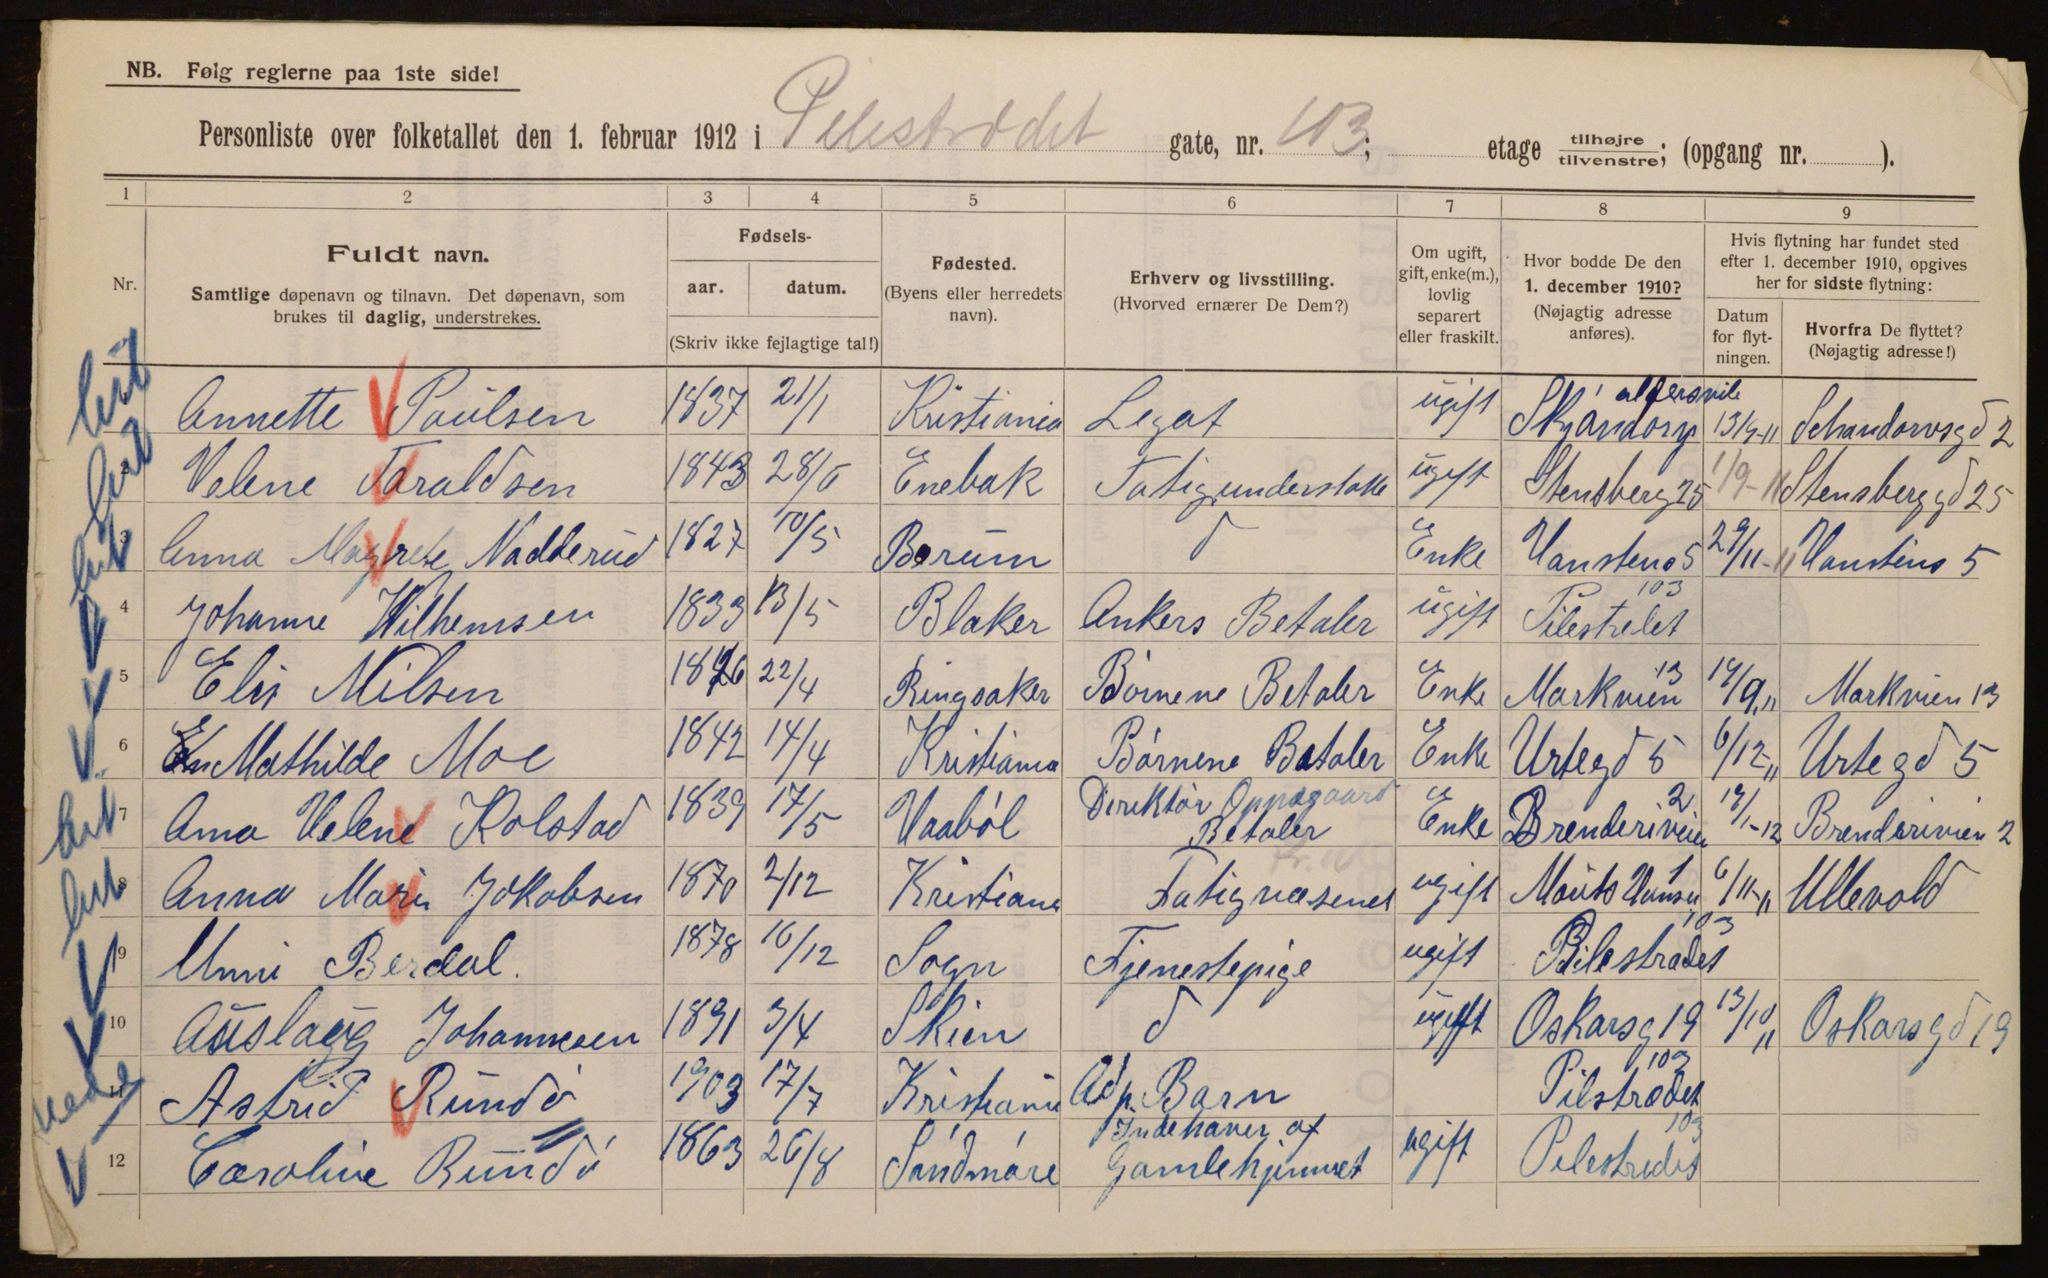 NB. Følg reglerne paa 1ste side!
Personliste over folketallet den 1. februar 1912 i Pilestrædet gate, nr. 103; etage tilhøjre/tilvenstre; (opgang nr. ).
1 2 3 4 5 6 7 8 9
Nr.
Fuldt navn.
Samtlige døpenavn og tilnavn. Det døpenavn, som
brukes til daglig, understrekes.
Fødsels-
aar. datum.
(Skriv ikke fejlagtige tal!)
Fødested.
(Byens eller herredets
navn).
Erhverv og livsstilling.
(Hvorved ernærer De Dem?)
Om ugift,
gift, enke(m.),
lovlig
separert
eller fraskilt.
Hvor bodde De den
1. december 1910?
(Nøjagtig adresse
anføres).
Hvis flytning har fundet sted
efter 1. december 1910, opgives
her for sidste flytning:
Datum
for flyt-
ningen.
Hvorfra De flyttet?
(Nøjagtig adresse!)
Annette Paulsen 1837 21/1 Kristiania Legat ugift aldersvile
2 Helene Taraldsen 1843 28/6 Enebak Fatigunderstøtte ugift Stensberg 25 1/9-11 Stensberggd 25
3 Anna Magrete Nadderud 1827 10/5 Berum d Enke Hanstens 5 29/11-11 Hanstens 5
4 Johanne Wilhemsen 1833 13/5 Blaker Ankers Betaler ugift Pilestredet 103
5 Elis Nilsen 1826 22/4 Ringsaker Børnene Betaler Enke Markveien 13 Markveien 13
6 Mathilde Moe 1842 14/4 Kristiania Børnene Betaler Enke Urtegd 5 6/12 11 Urtegd 5
7 Anna Helene Kolstad 1839 17/5 Vaabøl Direktør Oppegaard Betaler Enke Brenderiveien 2 Brenderiveien 2
8 Anna Marie Jokobsen 1870 2/12 Kristiania Fatigvæsenet ugift 6/11-11 Ullevold
9 Unni Berdal. 1878 16/12 Sogn Tjenestepige ugift Pilestrædet 103
10 Auslaug Johannesen 1891 3/4 Skien d ugift Oskarsg 19 13/10 11 Oskarsgd 19
11 Astrid Rundø 1903 17/7 Kristiania Adp. Barn Pilstrædet 103
12 Caroline Rundø 1863 26/8 Søndmøre Indehaver af Gamlehjemmet ugift Pilestrædet 103